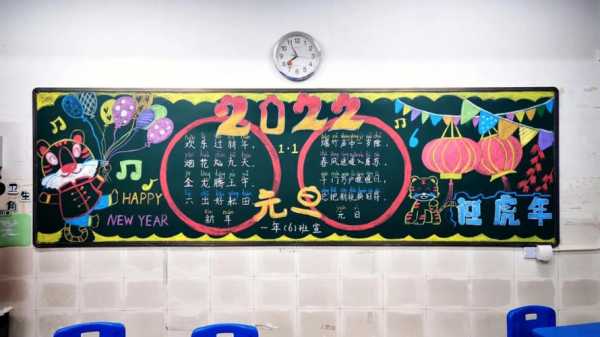 2022
HAPPY
NEW YEAR
欢乐过新年,
烟花
金龙腾
六出好
新年
1·1
元旦
一年(6)班宣
爆竹声中一岁除,
春风送暖入屠苏。
千门万户曈曈日,
总把新桃换旧符。
元日
虎年
卫生